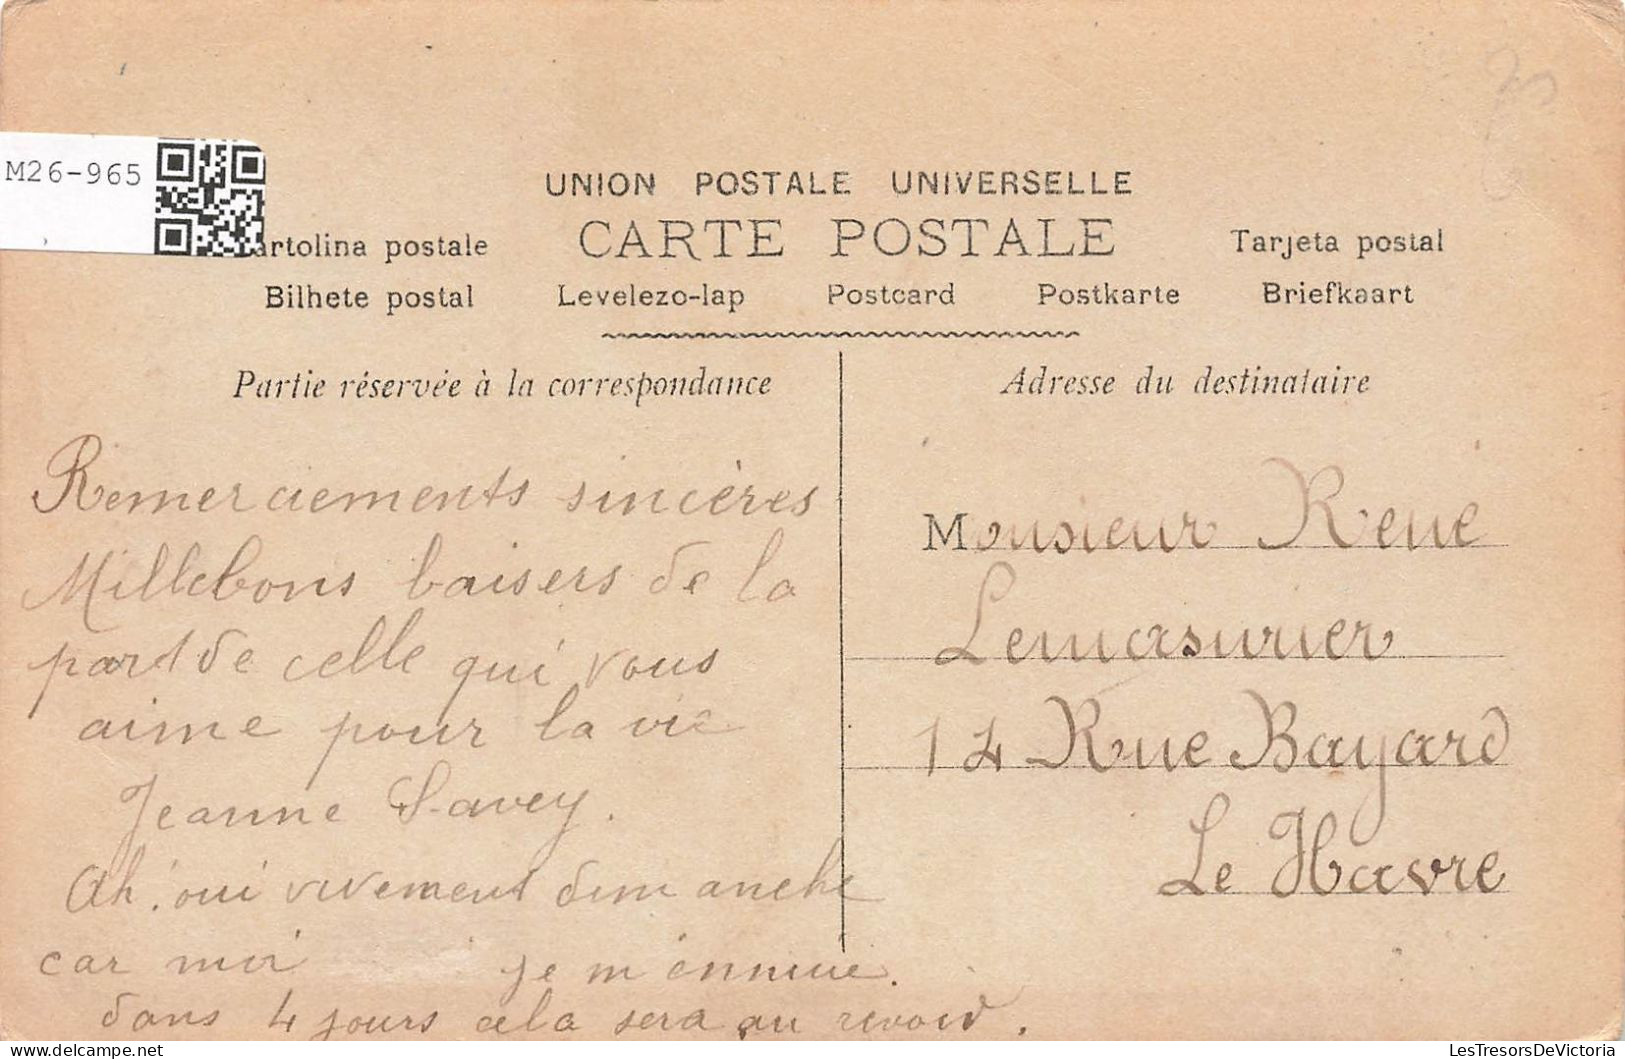 M26-965
UNION POSTALE UNIVERSELLE
CARTE POSTALE
artolina postale
Tarjeta postal
Bilhete postal Levelezo-lap Postcard Postkarte Briefkaart
Partie réservée à la correspondance
Remerciements sincères
Mille bons baisers de la
part de celle qui vous
aime pour la vie
Jeanne Savey.
Ah! oui vivement dimanche
car moi je m'ennuie.
dans 4 jours cela sera au revoir.
Adresse du destinataire
Monsieur René
Lemasurier
14 Rue Bayard
Le Havre
LesTresorsDeVictoria